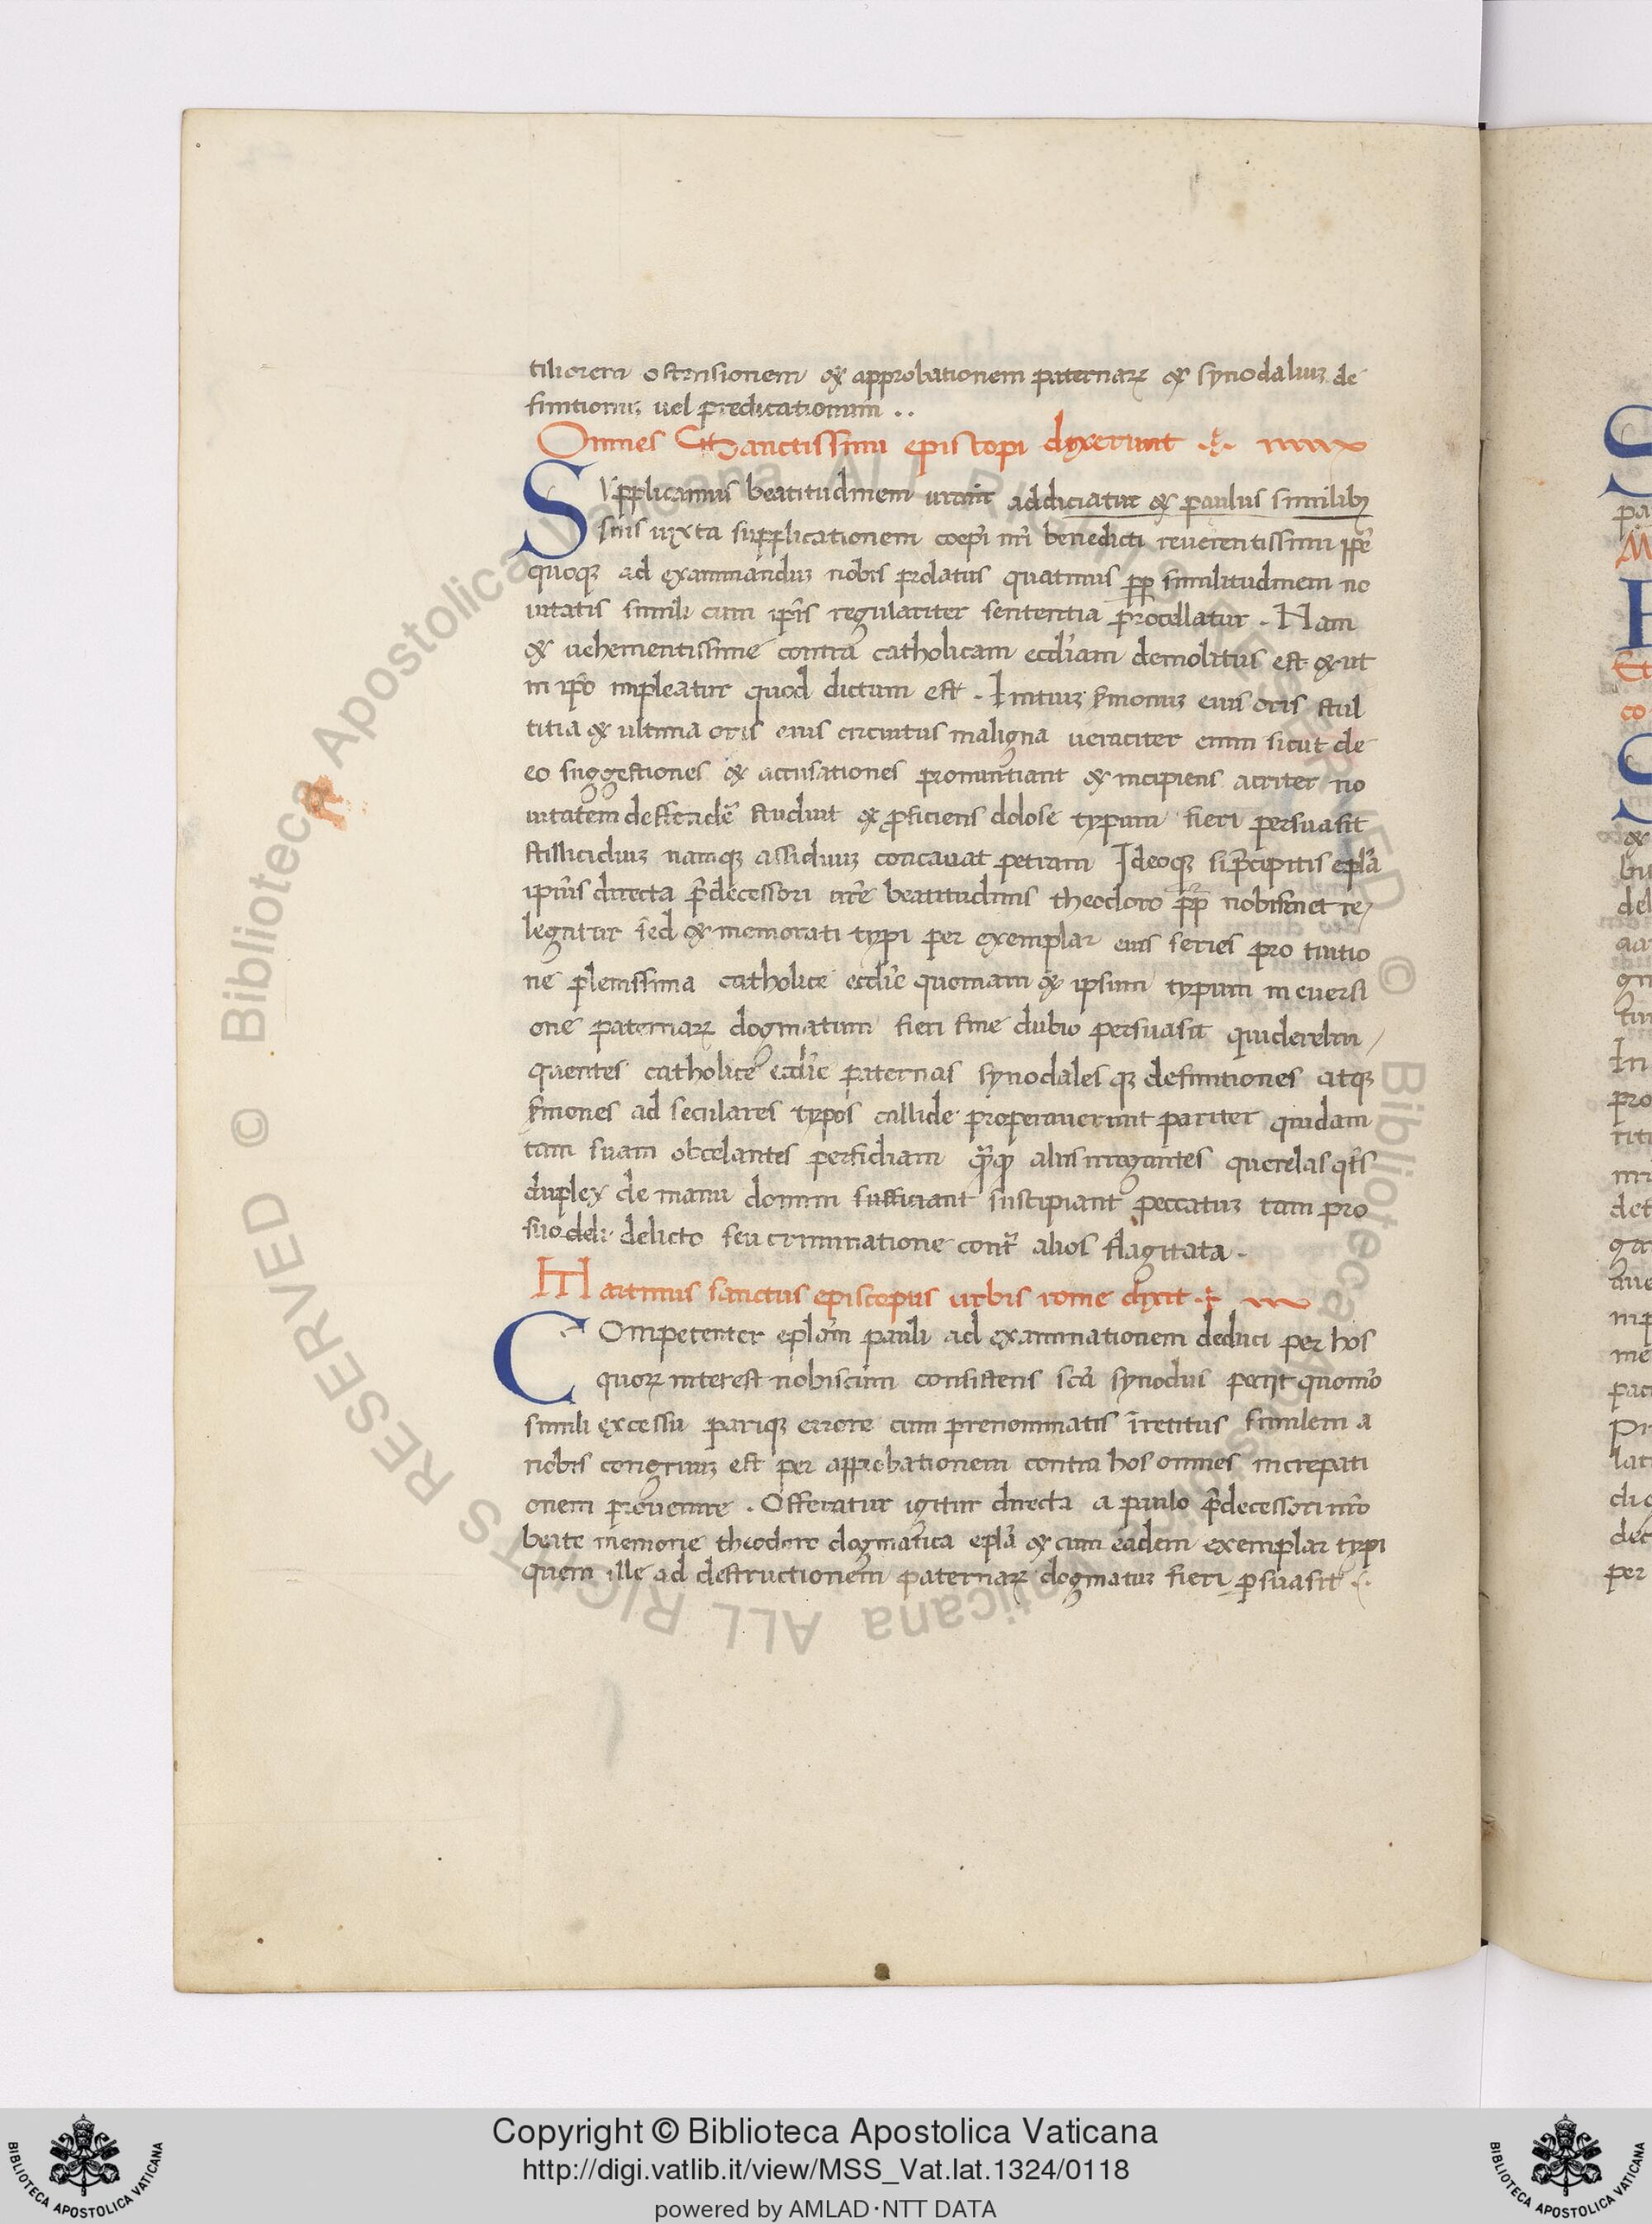 tiliorem ostensionem & approbationem paternaꝝ & synodaliuꝫ de
finitionuꝫ uel predicationum ..
Omnes Sanctissimi episcopi dixerunt
SVpplicamus beatitudinem uram addiciatur & paulus similibꝫ
suis iuxta supplicationem coepi nri benedicti reuerentissimi ipse
quoqꝫ ad examinanduꝫ nobis prolatus quatinus ꝓp similitudinem no
uitatis simili cum ipsis regulariter sententia procellatur . Nam
& uehementissime contra catholicam eccliam demolitus est & ut
in ipso impleatur quod dictum est . Initiuꝫ sermonuꝫ eius oris stul
titia & ultima oris eius circuitus maligna ueraciter enim sicut de
eo suggestiones & accusationes pronuntiant & incipiens acriter no
uitatem deffendere studuit & proficiens dolose typum fieri persuasit
stilliciduiꝫ namqꝫ assiduuꝫ concauat petram Ideoqꝫ si precipitis epla
ipsius directa predecessori ure beatitudinis theodoro pp nobismet re
legatur sed & memorati typi per exemplar eius series pro tuitio
ne plenissima catholice ecclie quoniam & ipsum typum in euersi
one paternaꝝ dogmatum fieri sine dubio persuasit qui derelin
quentes catholice ecclie paternas synodales qꝫ definitiones atqꝫ
sermones ad seculares typos callide properauerunt pariter quidam
tam suam obcelantes perfidiam aliis irrogantes querelas
duplex de manu domini sufficiant suscipiant peccatuꝫ tam pro
suo deli delicto seu criminatione contra alios flagitata .
Martinus sanctus episcopus urbis rome dixit
COmpetenter eplam pauli ad examinationem deduci per hos
quoꝝ interest nobiscum consistens sca synodus petiit quomo
simili excessu pariqꝫ errore cum prenominatis iretitus similem a
nobis congruuꝫ est per approbationem contra hos omnes increpati
onem preuenire . Offeratur igitur directa a paulo predecessori nro
beate memorie theodoro dogmatica epla & cum eadem exemplar typi
quem ille ad destructionem paternaꝝ dogmatuꝫ fieri persuasit
© Biblioteca Apostolica Vaticana ALL RIGHTS RESERVED © Biblioteca Apostolica Vaticana ALL RIGHTS RESERVED
Copyright © Biblioteca Apostolica Vaticana
http://digi.vatlib.it/view/MSS_Vat.lat.1324/0118
powered by AMLAD·NTT DATA
BIBLIOTECA APOSTOLICA VATICANA
BIBLIOTECA APOSTOLICA VATICANA